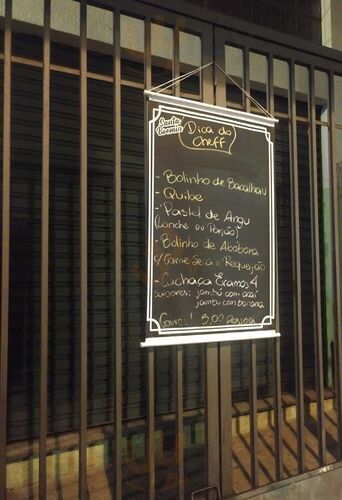 Santa
Boemia
Dica do
Cheff
- Bolinho de Bacalhau
- Quibe
- Pastel de Angu
(Lanche ou Porção)
- Bolinho de Abóbora
c/ Carne Seca e Requeijão
- Cachaça Eramos 4
Sabores: jambú com açaí
jambu com banana
5,00